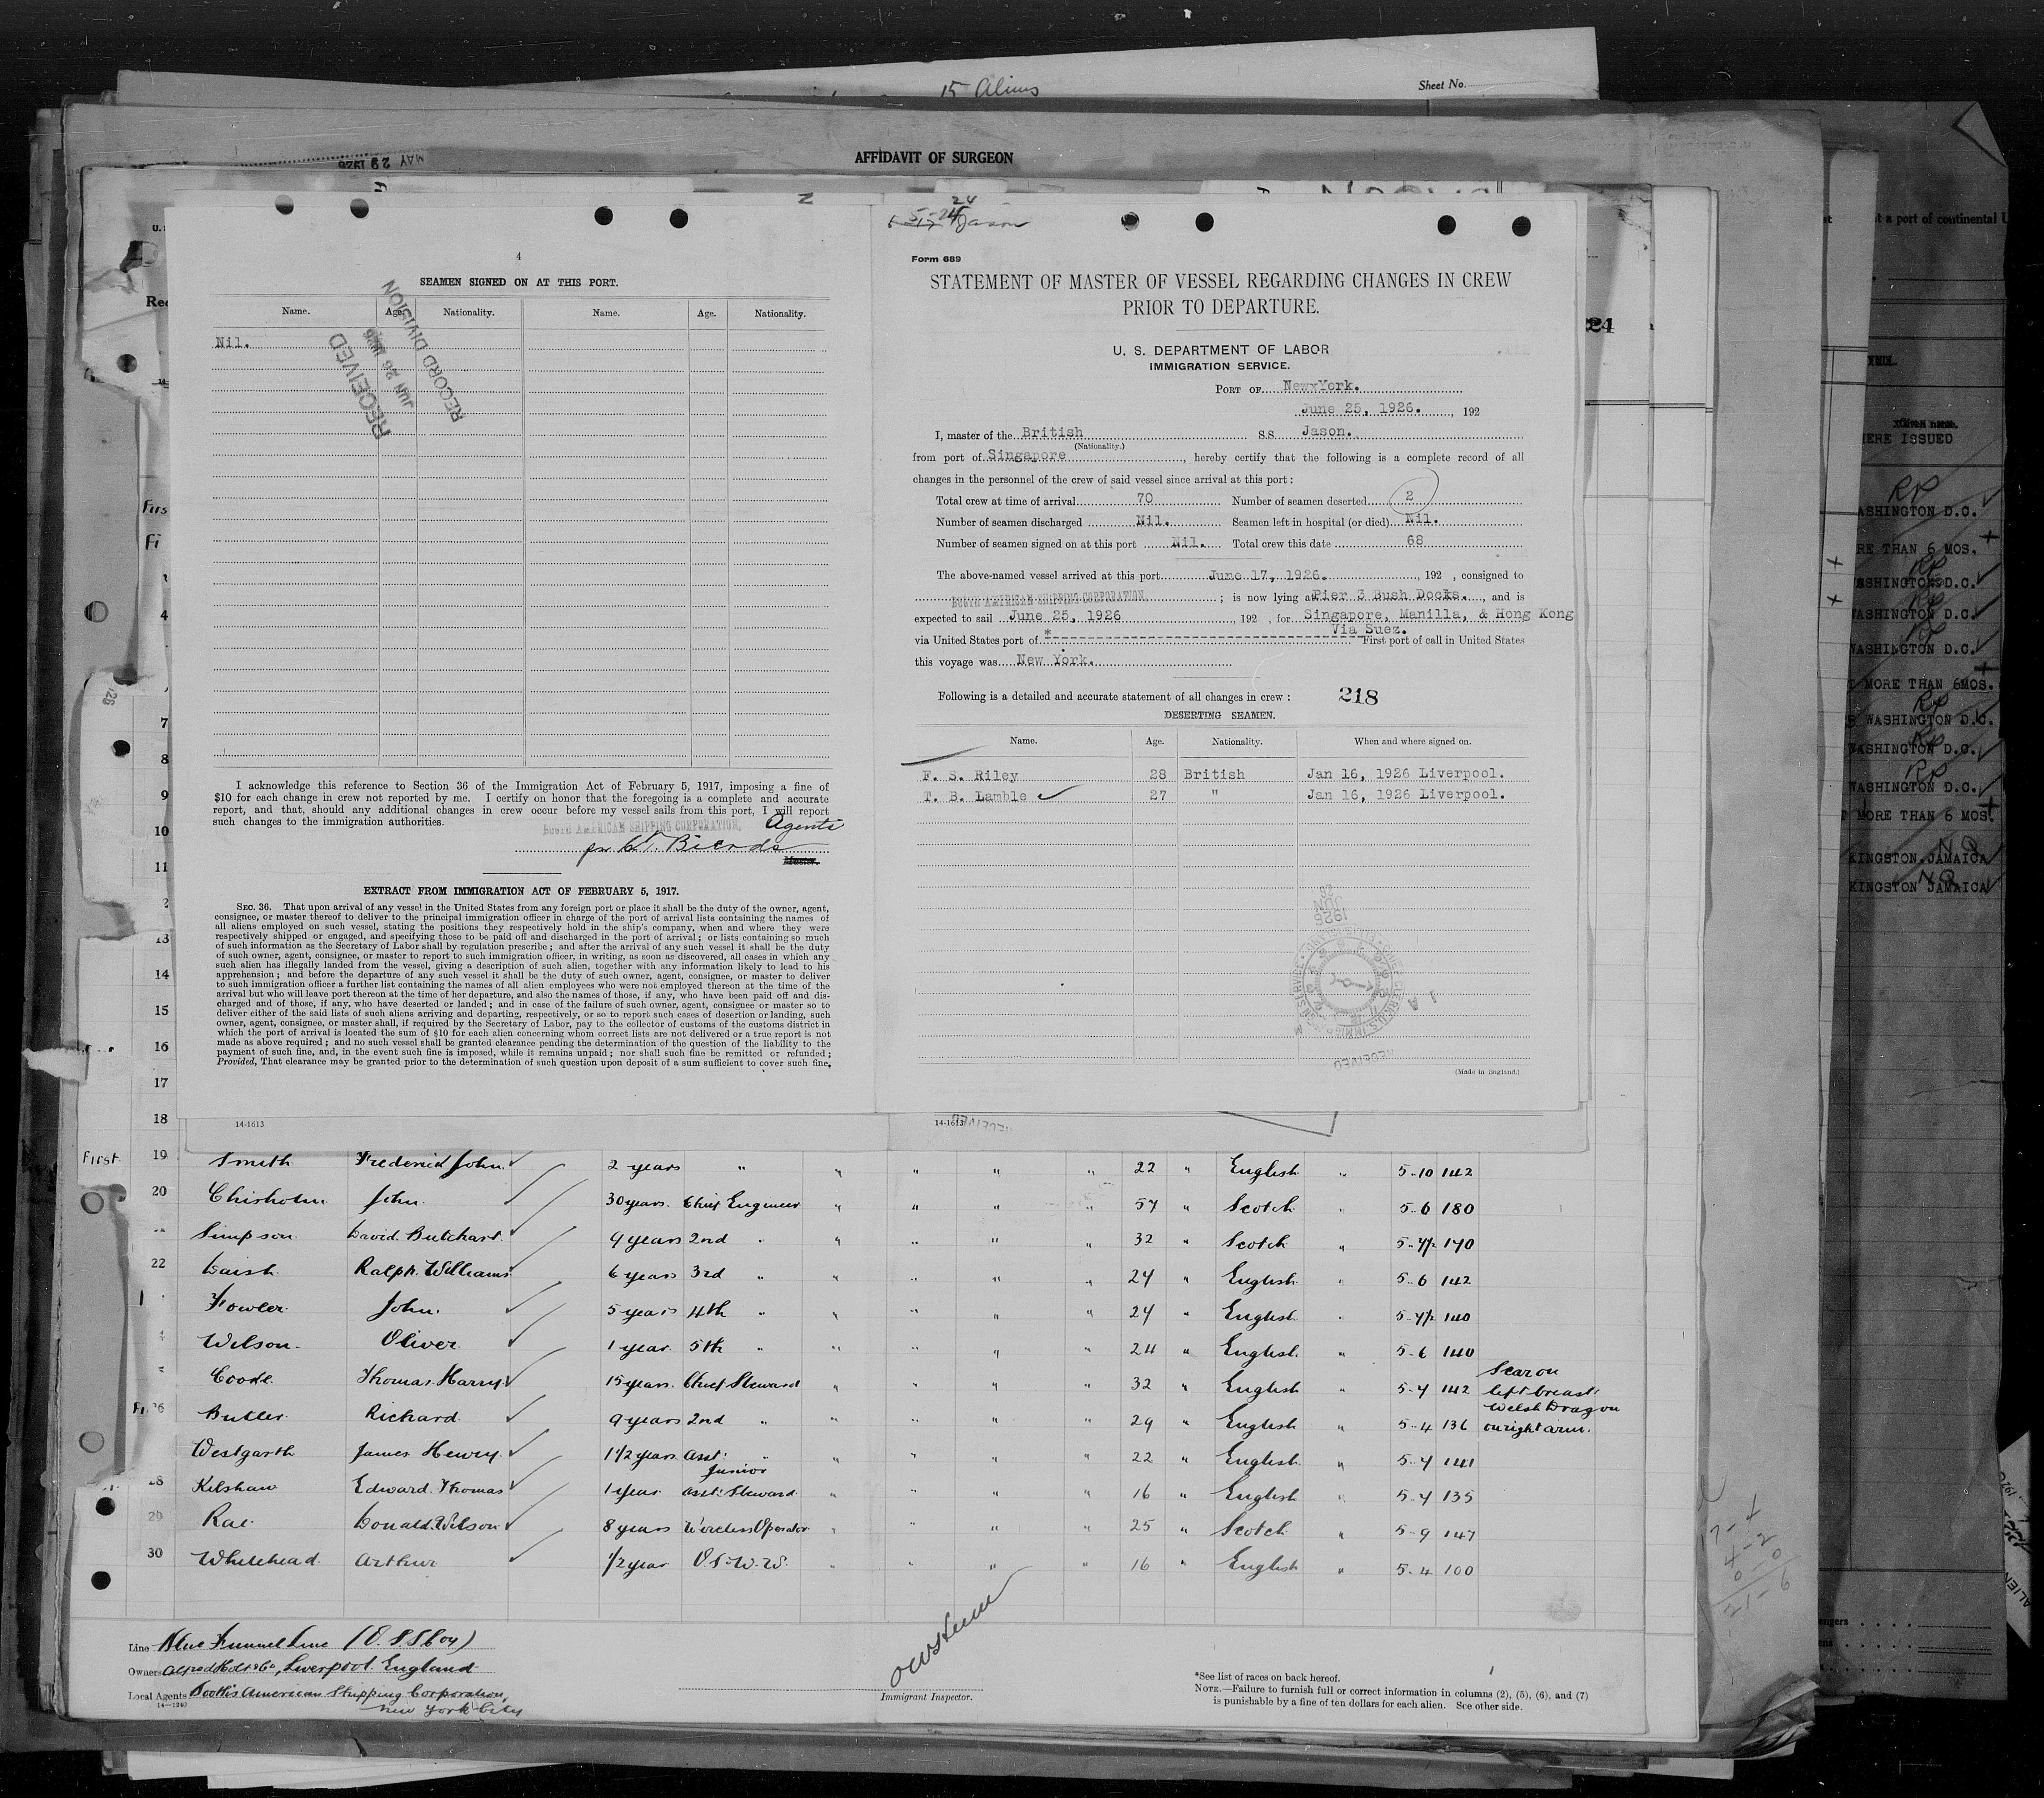 15 Aliens
Sheet No.
AFFIDAVIT OF SURGEON
MAY 29 1926
4
SEAMEN SIGNED ON AT THIS PORT.
Name. Age. Nationality. Name. Age. Nationality.
Nil.
RECEIVED
JUN 26 1926
RECORD DIVISION
I acknowledge this reference to Section 36 of the Immigration Act of February 5, 1917, imposing a fine of
$10 for each change in crew not reported by me. I certify on honor that the foregoing is a complete and accurate
report, and that, should any additional changes in crew occur before my vessel sails from this port, I will report
such changes to the immigration authorities.
BOOTH AMERICAN SHIPPING CORPORATION. Agents
Master.
EXTRACT FROM IMMIGRATION ACT OF FEBRUARY 5, 1917.
SEC. 36. That upon arrival of any vessel in the United States from any foreign port or place it shall be the duty of the owner, agent,
consignee, or master thereof to deliver to the principal immigration officer in charge of the port of arrival lists containing the names of
all aliens employed on such vessel, stating the positions they respectively hold in the ship's company, when and where they were
respectively shipped or engaged, and specifying those to be paid off and discharged in the port of arrival; or lists containing so much
of such information as the Secretary of Labor shall by regulation prescribe; and after the arrival of any such vessel it shall be the duty
of such owner, agent, consignee, or master to report to such immigration officer, in writing, as soon as discovered, all cases in which any
such alien has illegally landed from the vessel, giving a description of such alien, together with any information likely to lead to his
apprehension; and before the departure of any such vessel it shall be the duty of such owner, agent, consignee, or master to deliver
to such immigration officer a further list containing the names of all alien employees who were not employed thereon at the time of the
arrival but who will leave port thereon at the time of her departure, and also the names of those, if any, who have been paid off and dis-
charged and of those, if any, who have deserted or landed; and in case of the failure of such owner, agent, consignee or master so to
deliver either of the said lists of such aliens arriving and departing, respectively, or so to report such cases of desertion or landing, such
owner, agent, consignee, or master shall, if required by the Secretary of Labor, pay to the collector of customs of the customs district in
which the port of arrival is located the sum of $10 for each alien concerning whom correct lists are not delivered or a true report is not
made as above required; and no such vessel shall be granted clearance pending the determination of the question of the liability to the
payment of such fine, and, in the event such fine is imposed, while it remains unpaid; nor shall such fine be remitted or refunded;
Provided, That clearance may be granted prior to the determination of such question upon deposit of a sum sufficient to cover such fine.
14-1613
24
Jason
Form 689
STATEMENT OF MASTER OF VESSEL REGARDING CHANGES IN CREW
PRIOR TO DEPARTURE.
U. S. DEPARTMENT OF LABOR
IMMIGRATION SERVICE.
PORT OF NewxYork.
June 25, 1926. , 192
I, master of the British SS Jason.
(Nationality.)
from port of Singapore , hereby certify that the following is a complete record of all
changes in the personnel of the crew of said vessel since arrival at this port:
Total crew at time of arrival 70 Number of seamen deserted 2
Number of seamen discharged Nil. Seamen left in hospital (or died) Nil.
Number of seamen signed on at this port Nil. Total crew this date 68
The above-named vessel arrived at this port June 17, 1926. , 192 , consigned to
BOOTH AMERICAN SHIPPING CORPORATION. ; is now lying at Pier 3 Bush Docks. , and is
expected to sail June 25, 1926 , 192 , for Singapore, Manilla, & Hong Kong
Via Suez.
via United States port of * First port of call in United States
this voyage was New York.
Following is a detailed and accurate statement of all changes in crew: 218
DESERTING SEAMEN.
Name. Age. Nationality. When and where signed on.
F. S. Riley 28 British Jan 16, 1926 Liverpool.
T. B. Lamble 27 " Jan 16, 1926 Liverpool.
(Made in England.)
14-1613
First 19 Smith Frederick John 2 years " " " " " 22 " English " 5-10 142
20 Chisholm John 30 years Chief Engineer " " " " 57 " Scotch " 5-6 180
Simpson David Butchart 9 years 2nd " " " " " 32 " Scotch " 5-7½ 170
22 Daish Ralph Williams 6 years 3rd " " " " " 24 " English " 5-6 142
Fowler John 5 years 4th " " " " " 24 " English " 5-7½ 140
Wilson Oliver 1 year 5th " " " " " 24 " English " 5-6 140
Coode Thomas Harry 15 years Chief Steward " " " " 32 " English " 5-7 142 Scar on left breast
26 Butler Richard 9 years 2nd " " " " " 29 " English " 5-4 136 Welsh Dragon on right arm
Westgarth James Henry 1½ years Asst. " " " " " 22 " English " 5-7 141
28 Kelshaw Edward Thomas 1 year Junior Asst. Steward " " " " 16 " English " 5-7 135
29 Rae Donald Wilson 8 years Wireless Operator " " " " 25 " Scotch " 5-9 147
30 Whitehead Arthur ½ year " " " " 16 " English " 5-4 100
Line Blue Funnel Line
Owners Alfred Holt & Co, Liverpool England
Local Agents Booth American Shipping Corporation,
New York City
14-1240
Immigrant Inspector.
*See list of races on back hereof.
NOTE.—Failure to furnish full or correct information in columns (2), (5), (6), and (7)
is punishable by a fine of ten dollars for each alien. See other side.
t a port of continental U
ERE ISSUED
ASHINGTON D.C.
RE THAN 6 MOS.
WASHINGTON D.C.
WASHINGTON D.C.
WASHINGTON D.C.
T MORE THAN 6MOS.
WASHINGTON D.C.
WASHINGTON D.C.
WASHINGTON D.C.
T MORE THAN 6 MOS.
KINGSTON JAMAICA
KINGSTON JAMAICA